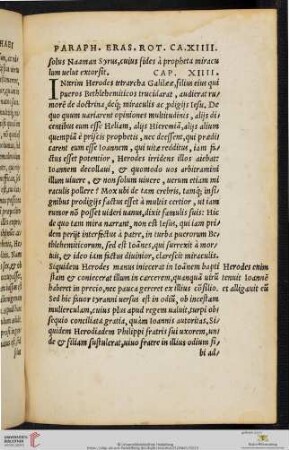 PARAPH. ERAS. ROT. CA.XIIII.
solus Naaman Syrus, cuius fides à propheta miracu
lum uelut extorsit. CAP. XIIII.
INterim Herodes tetrarcha Galileæ, filius eius qui
pueros Bethlehemiticos trucidarat, audierat ru=
morē de doctrina, deq; miraculis ac pdigijs Iesu. De
quo quum uariarent opiniones multitudinis, alijs di=
centibus eum esse Heliam, alijs Hieremiā, alijs alium
quempiā è priscis prophetis, nec deessent, qui prædi
carent eum esse Ioannem, qui uitæ redditus, iam fa=
ctus esset potentior, Herodes irridens illos aiebat:
Ioannem decollaui, & quomodo uos arbitramini
illum uiuere, & non solum uiuere, uerum etiam mi
raculis pollere? Mox ubi de tam crebris, tamq; insi=
gnibus prodigijs factus esset à multis certior, ut iam
rumor nō posset uideri uanus, dixit famulis suis: Hic
de quo tam mira narrant, non est Iesus, qui iam pri=
dem perijt interfectus à patre, in turba puerorum Be
thlehemiticorum, sed est Ioānes, qui surrexit à mor=
tuis, & ideo iam factus diuinior, clarescit miraculis.
Siquidem Herodes manus inijcerat in Ioannem bapti
stam & coniecerat illum in carcerem, quanquā uirū
haberet in precio, nec pauca gereret ex illius cōsilio.
Sed hic fiuor tyranni uersus est in odiū, ob incestam
mulierculam, cuius plus apud regem ualuit, turpi ob
sequio conciliata gratia, quàm Ioannis autoritas. Si=
quidem Herodiadem Philippi fratris sui uxorem, un=
de & filiam sustulerat, uiuo fratre in illius odium si=
bi ad/
Herodes enim
tenuit Ioannē
et alligauit eū